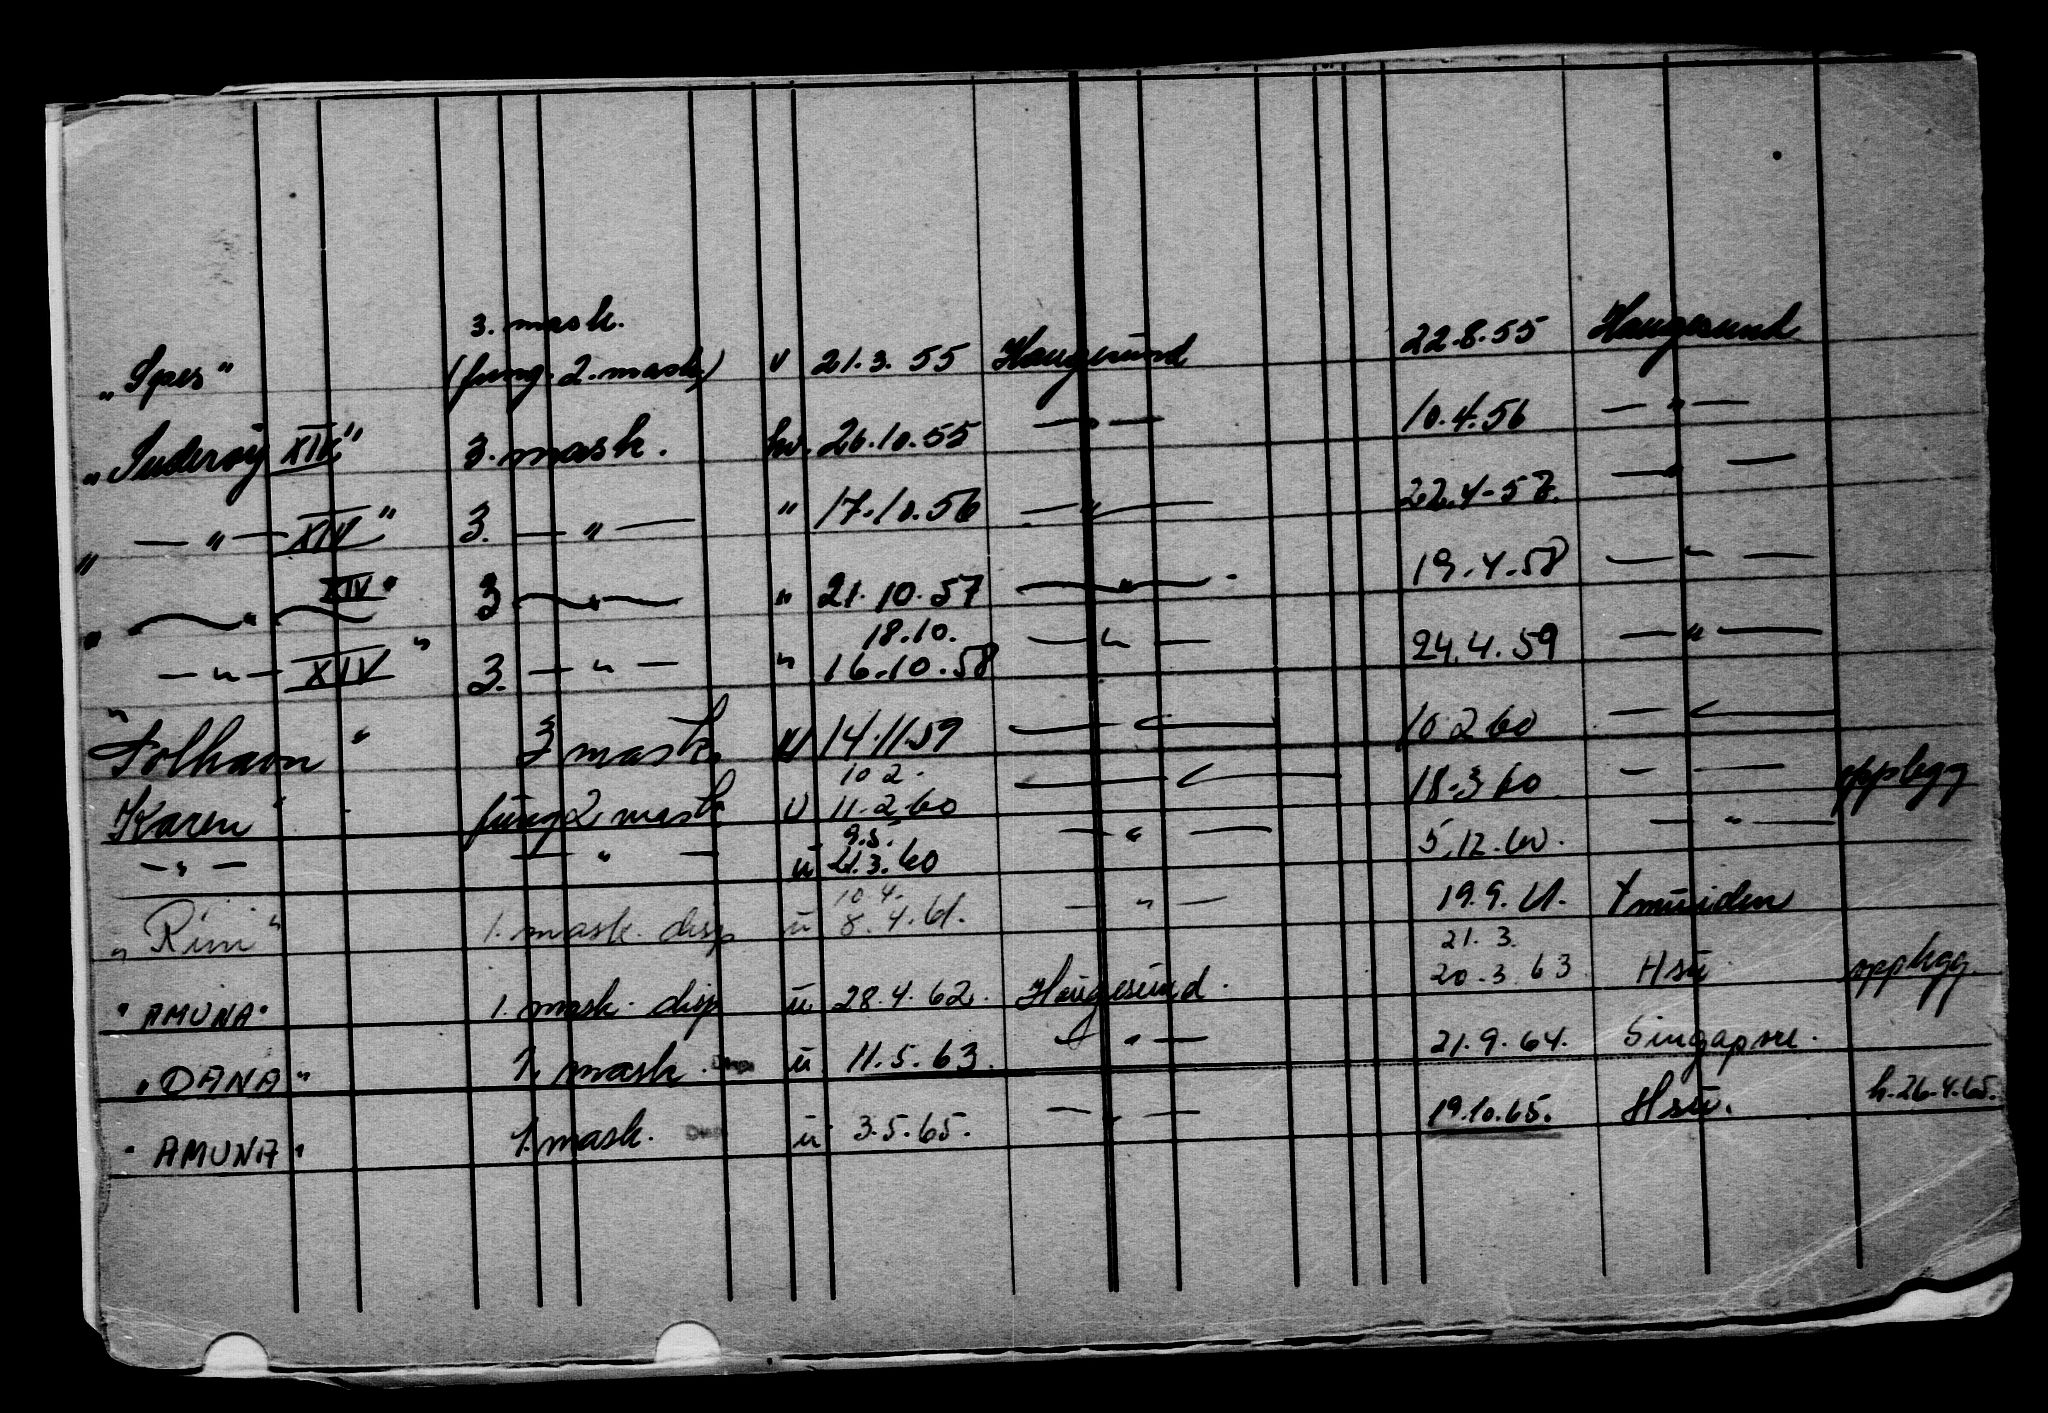 3. mask.
„Spes" (fung. 2. mask.) v 21.3.55 Haugesund 22.8.55 Haugesund
„Suderøy XIV" 3. mask. hv. 26.10.55 — " — 10.4.56 — " —
„ — " — XIV" 3. — " — " 17.10.56 — " — 22.4-57. — " —
„ — " — XIV" 3 — " — " 21.10.57 — " — 19.4.58 — " —
18.10.
„ — " — XIV" 3. — " — " 16.10.58 — " — 24.4.59 — " —
"Solhavn" 3 mask. u 14.11.59 — " — 10.2.60 — " —
10 2.
Karen " fung 2 mask u 11.2.60 — " — 18.3.60 — " — opplegg
9.5.
— " — — " — u 21.3.60 — " — 5.12.60. — " —
10.4.
„Rimi" 1. mask. disp u 8.4.61. — " — 19.9.61. Ymuiden
21.3.
"AMUNA" 1. mask. disp u 28.4.62. Haugesund. 20.3.63 Hsu. opplegg.
„DANA" 1. mask. Disp. u 11.5.63. — " — 21.9.64. Singapore.
"AMUNA" 1. mask. Disp u 3.5.65. — " — 19.10.65. Hsu. h. 26.4.65.